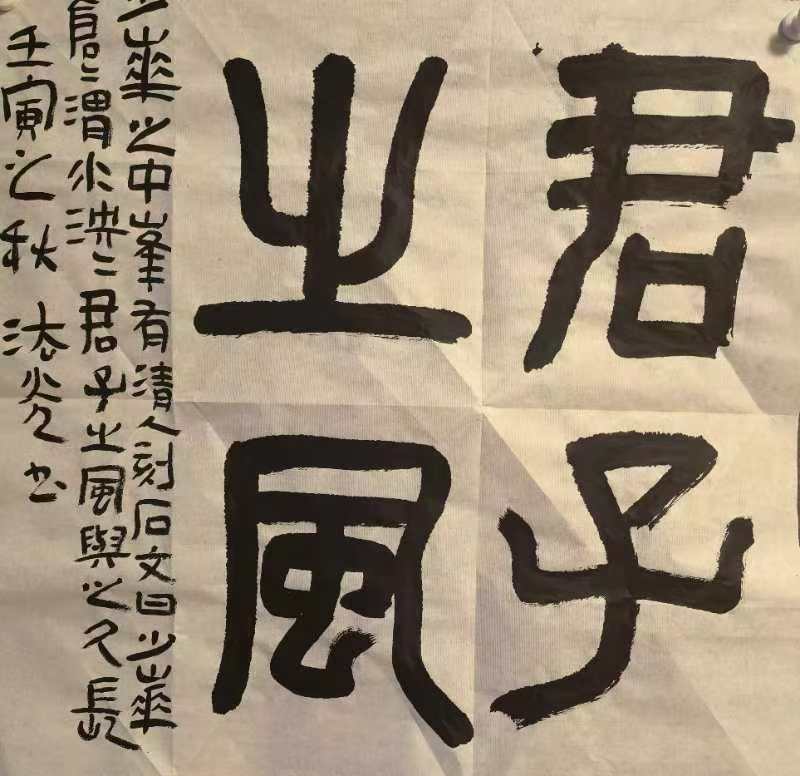 君子
之風
少華之中峯有清人刻石文曰少華
二渭水泱二君子之風與之久長
壬寅之秋 法 书